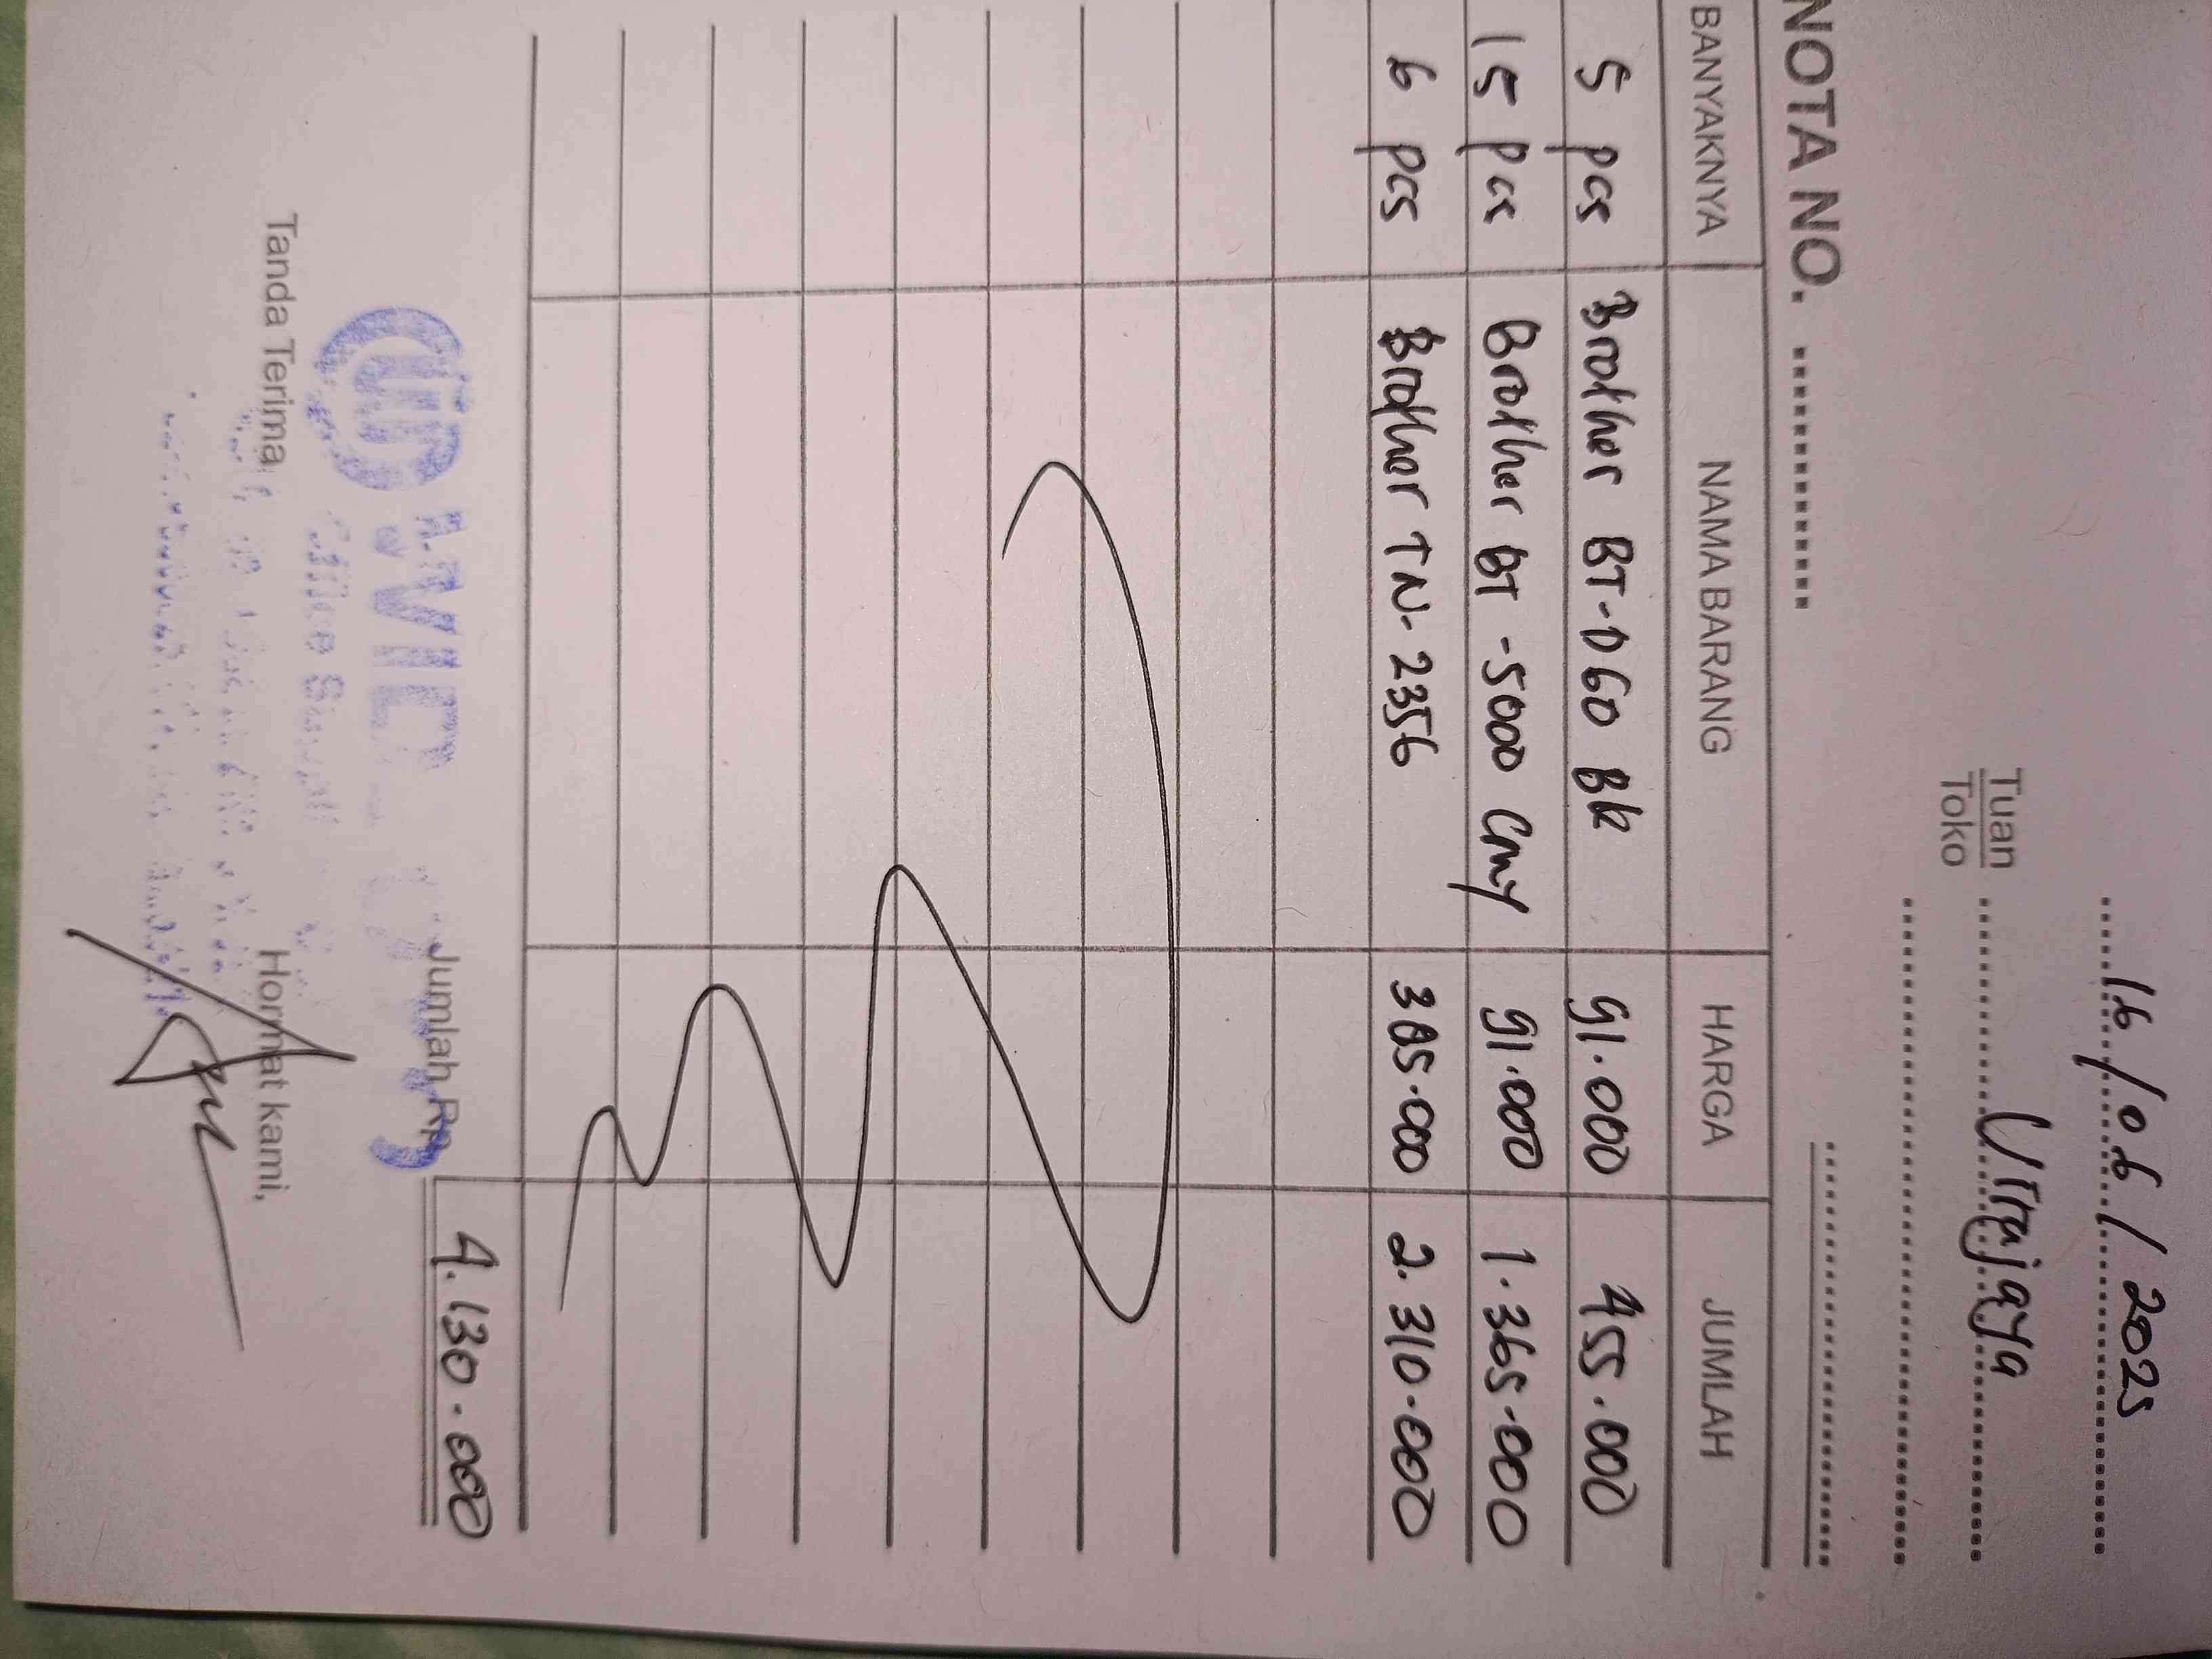 16/06/2025
Tuan
Toko
NOTA NO.
BANYAKNYA NAMA BARANG HARGA JUMLAH
5 pcs Brother BT-D60 Bk 91.000 455.000
15 pcs Brother BT-5000 Cmy 91.000 1.365.000
6 pcs Brother TN-2356 385.000 2.310.000
Jumlah Rp. 4.130.000
Tanda Terima, Hormat kami,
Office